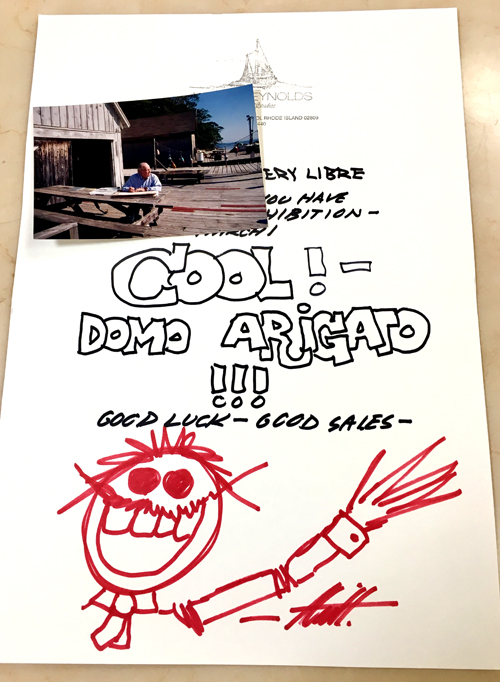 EYNOLDS
RHODE ISLAND 02809
ERY LIBRE
YOU HAVE
HIBITION-
MARCH 1
COOL! -
DOMO ARIGATO
!!!
GOOD LUCK - GOOD SALES -